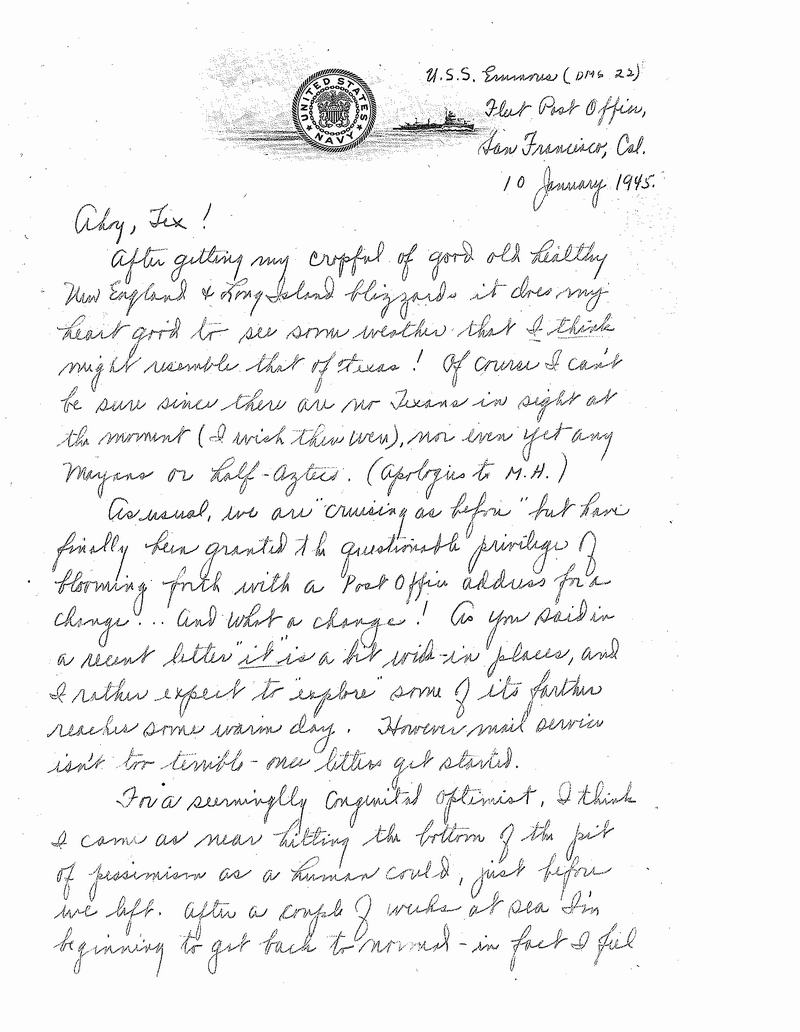 UNITED STATES NAVY
U.S.S. Emmons (DMS 22)
Fleet Post Office,
San Francisco, Cal.
10 January 1945.
Ahoy, Tex!
After getting my cropful of good old healthy
New England & Long Island blizzards it does my
heart good to see some weather that I think
might resemble that of Texas! Of course I can't
be sure since there are no Texans in sight at
the moment (I wish there were), nor even yet any
Mayans or half-Aztecs. (Apologies to M.H.)
As usual, we are "cruising as before" but have
finally been granted the questionable privilege of
blooming forth with a Post Office address for a
change... And what a change! As you said in
a recent letter "it" is a bit wide-in places, and
I rather expect to "explore" some of its farther
reaches some warm day. However mail service
isn't too terrible - once letters get started.
For a seeminglly congenital optimist, I think
I came as near hitting the bottom of the pit
of pessimism as a human could, just before
we left. After a couple of weeks at sea I'm
beginning to get back to normal - in fact I feel